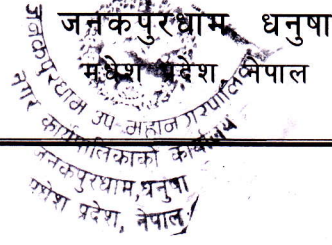 जनकपुरधाम धनुषा
मधेश प्रदेश, नेपाल
जनकपुरधाम उप-महानगरपालिका
नगर कार्यपालिकाको कार्यालय
जनकपुरधाम, धनुषा
मधेश प्रदेश, नेपाल